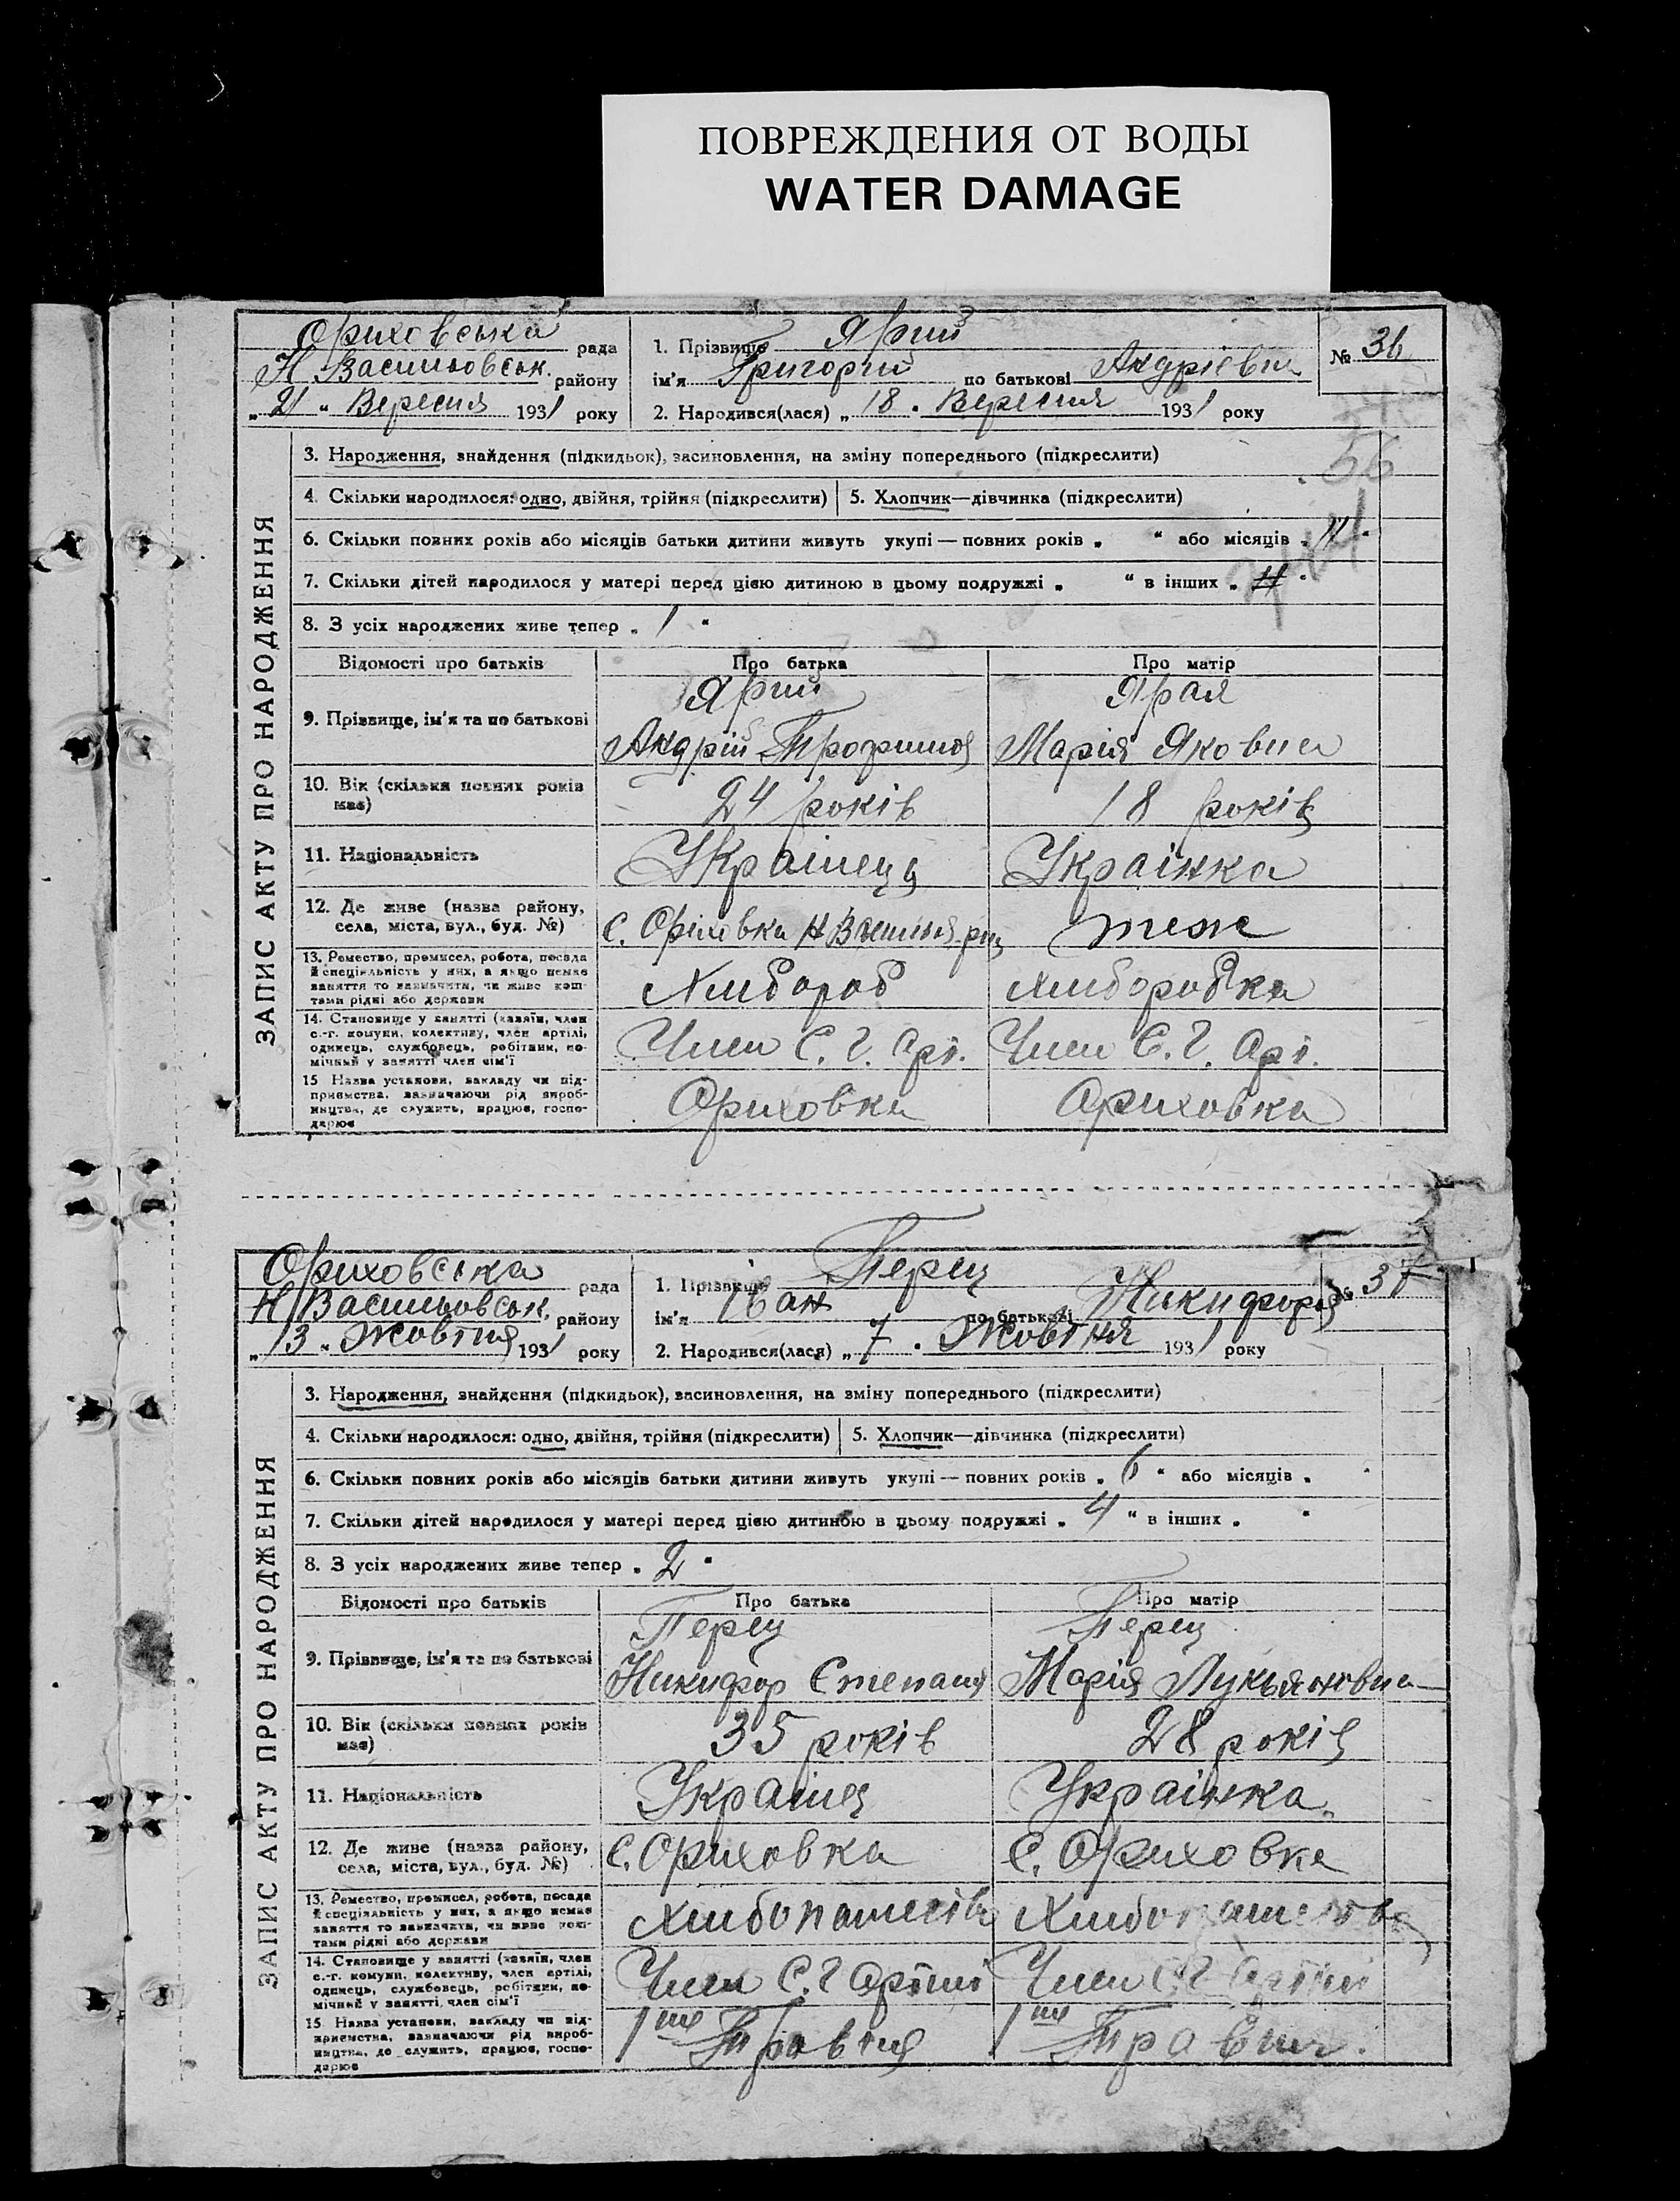 ПОВРЕЖДЕНИЯ ОТ ВОДЫ
WATER DAMAGE
Ориховська рада
Н Васильовськ. району
„ 21 “ Вересня 1931 року
1. Прізвище Ярий
ім'я Григорий по батькові Андріевич
2. Народився(лася) „ 18 „ Вересня 1931 року
№ 36
56
ЗАПИС АКТУ ПРО НАРОДЖЕННЯ
3. Народження, знайдення (підкидьок), засиновлення, на зміну попереднього (підкреслити)
4. Скільки народилося: одно, двійня, трійня (підкреслити) 5. Хлопчик—дівчинка (підкреслити)
6. Скільки повних років або місяців батьки дитини живуть укупі — повних років „ “ або місяців „ 11 “
7. Скільки дітей народилося у матері перед цією дитиною в цьому подружжі „ “ в інших „ Н “
8. З усіх народжених живе тепер „ 1 “
Відомості про батьків Про батька Про матір
9. Прізвище, ім'я та по батькові
Ярий Ярая
Андрій Трофимов Марія Яковна
10. Вік (скільки повних років має) 24 років 18 років
11. Національність Українець Українка
12. Де живе (назва району, села, міста, вул., буд. №) с. Ориховка Н Васильв. рн теж
13. Ремество, промисел, робота, посада й спеціяльність у них, а якщо немає заняття то зазначити, чи живе коштами рідні або держави Хлибороб хлиборобка
14. Становище у занятті (хазяїн, член с.-г. комуни, колективу, член артілі, одинець, службовець, робітник, помічний у занятті член сім'ї Член С. Г. Арт. Член С. Г. Арт.
15 Назва установи, закладу чи підприємства, зазначаючи рід виробництва, де служить, працює, господарює Ориховка Ориховка
Ориховська рада
Н Васильовськ, району
„ 13 “ Жовтня 1931 року
1. Прізвище Перец
ім'я Іван по батькові Никифоров
2. Народився(лася) „ 7 „ Жовтня 1931 року
№ 37
ЗАПИС АКТУ ПРО НАРОДЖЕННЯ
3. Народження, знайдення (підкидьок), засиновлення, на зміну попереднього (підкреслити)
4. Скільки народилося: одно, двійня, трійня (підкреслити) 5. Хлопчик—дівчинка (підкреслити)
6. Скільки повних років або місяців батьки дитини живуть укупі — повних років „ 6 “ або місяців „ “
7. Скільки дітей народилося у матері перед цією дитиною в цьому подружжі „ 4 “ в інших „ “
8. З усіх народжених живе тепер „ 2 “
Відомості про батьків Про батька Про матір
9. Прізвище, ім'я та по батькові
Перец Перец
Никифор Степанов Марія Лукьяновна
10. Вік (скільки повних років має) 35 років 28 років
11. Національність Украінец Українка
12. Де живе (назва району, села, міста, вул., буд. №) С. Ориховка С. Ориховка
13. Ремество, промисел, робота, посада й спеціяльність у них, а якщо немає заняття то зазначити, чи живе коштами рідні або держави Хлибопашество Хлибопашество
14. Становище у занятті (хазяїн, член с.-г. комуни, колективу, член артілі, одинець, службовець, робітник, помічний у занятті член сім'ї Член С. Г Артілі Член С Г Артілі
15. Назва установи, закладу чи підприємства, зазначаючи рід виробництва, де служить, працює, господарює 1ше Травня 1ше Травня.